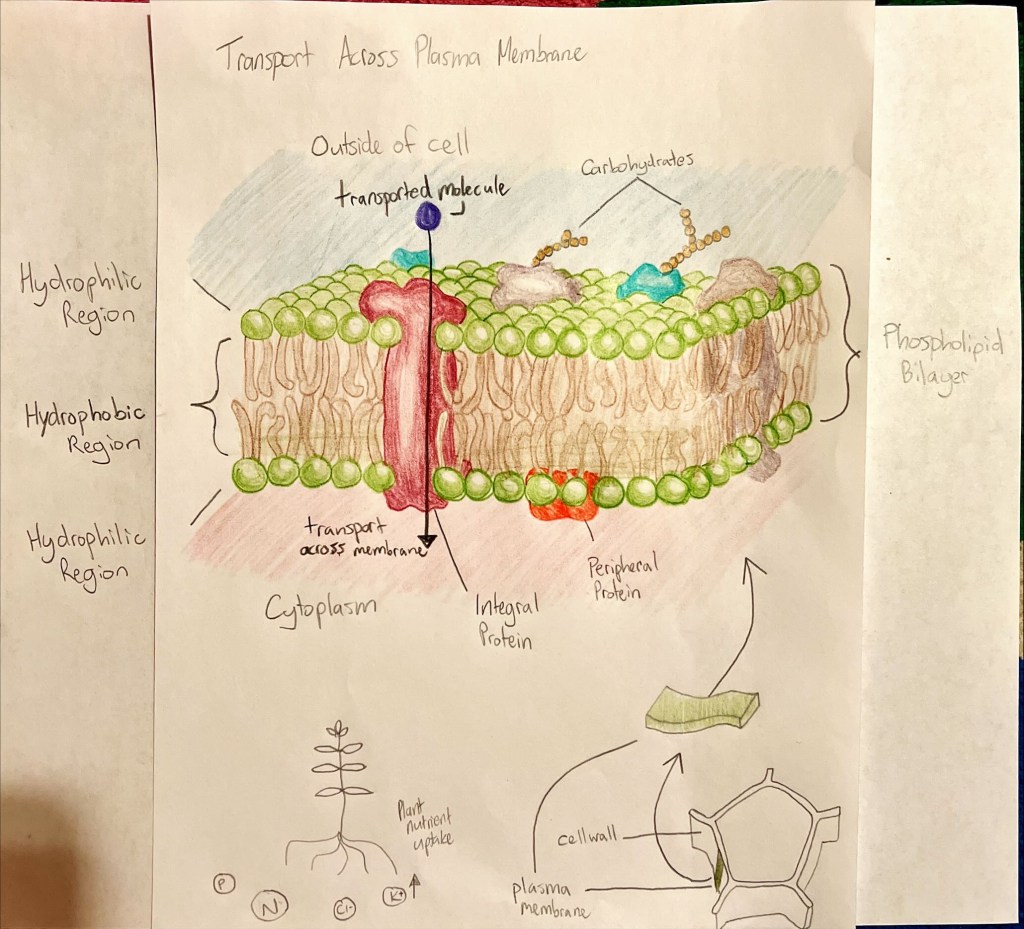 Transport Across Plasma Membrane
Outside of cell
transported molecule
Carbohydrates
Hydrophilic
Region
Hydrophobic
Region
Hydrophilic
Region
Phospholipid
Bilayer
transport
across membrane
Cytoplasm
Integral
Protein
Peripheral
Protein
Plant
nutrient
uptake
P
N
Cl-
K+
cell wall
plasma
membrane